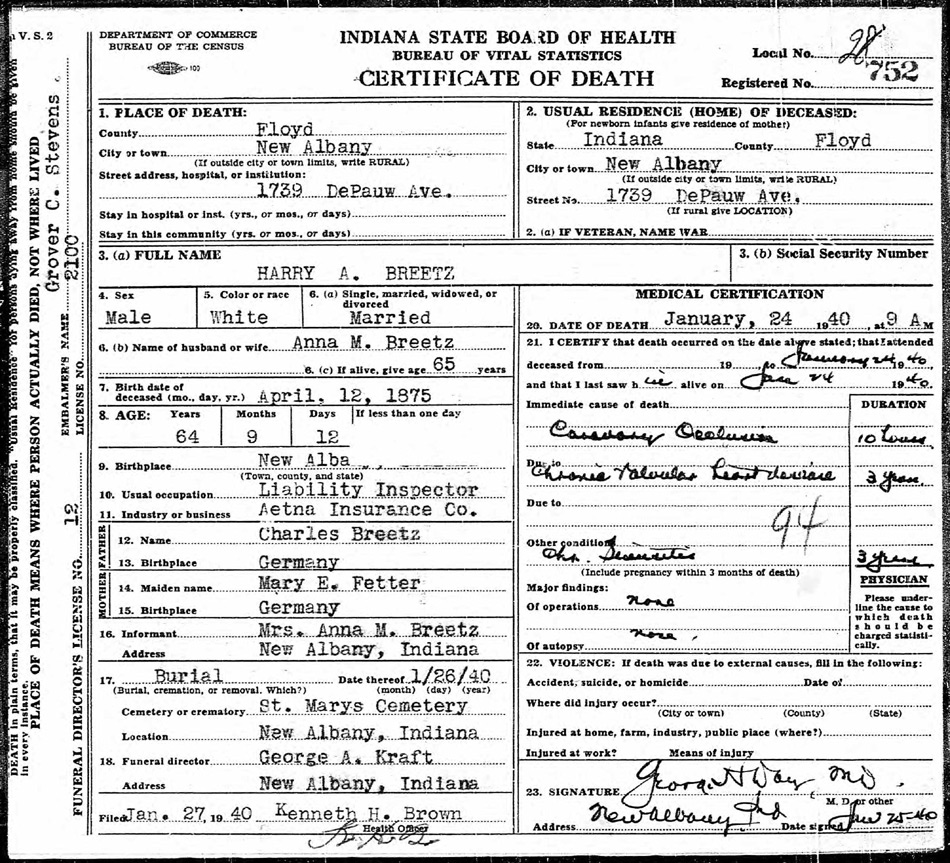 V. S. 2
DEPARTMENT OF COMMERCE
BUREAU OF THE CENSUS
INDIANA STATE BOARD OF HEALTH
BUREAU OF VITAL STATISTICS
CERTIFICATE OF DEATH
Local No. 28
Registered No. 752
1. PLACE OF DEATH:
County Floyd
City or town New Albany
(If outside city or town limits, write RURAL)
Street address, hospital, or institution:
1739 DePauw Ave.
Stay in hospital or inst. (yrs., or mos., or days)
Stay in this community (yrs. or mos., or days)
2. USUAL RESIDENCE (HOME) OF DECEASED:
(For newborn infants give residence of mother)
State Indiana County Floyd
City or town New Albany
(If outside city or town limits, write RURAL)
Street No. 1739 DePauw Ave.
(If rural give LOCATION)
2. (a) IF VETERAN, NAME WAR
3. (a) FULL NAME
HARRY A. BREETZ
3. (b) Social Security Number
4. Sex
Male
5. Color or race
White
6. (a) Single, married, widowed, or divorced
Married
6. (b) Name of husband or wife Anna M. Breetz
6. (c) If alive, give age 65 years
7. Birth date of
deceased (mo., day, yr.) April, 12, 1875
8. AGE: Years Months Days If less than one day
64 9 12
9. Birthplace New Alba
(Town, county, and state)
10. Usual occupation Liability Inspector
11. Industry or business Aetna Insurance Co.
FATHER
12. Name Charles Breetz
13. Birthplace Germany
MOTHER
14. Maiden name Mary E. Fetter
15. Birthplace Germany
16. Informant Mrs. Anna M. Breetz
Address New Albany, Indiana
17. Burial Date thereof 1/26/40
(Burial, cremation, or removal. Which?) (month) (day) (year)
Cemetery or crematory St. Marys Cemetery
Location New Albany, Indiana
18. Funeral director George A. Kraft
Address New Albany, Indiana
Filed Jan. 27, 19 40 Kenneth H. Brown
Health Officer
MEDICAL CERTIFICATION
20. DATE OF DEATH January, 24 1940, at 9 A M
21. I CERTIFY that death occurred on the date above stated; that I attended
deceased from 19 to January 24 1940
and that I last saw h im alive on Jan 24 1940.
Immediate cause of death DURATION
Coronary Occlusion 10 hours
Due to Chronic Valvular heart disease 3 years
Due to
94
Other conditions Chr. 3 years
(Include pregnancy within 3 months of death)
PHYSICIAN
Please underline the cause to which death should be charged statistically.
Major findings:
Of operations none
Of autopsy none
22. VIOLENCE: If death was due to external causes, fill in the following:
Accident, suicide, or homicide Date of
Where did injury occur?
(City or town) (County) (State)
Injured at home, farm, industry, public place (where?)
Injured at work? Means of injury
23. SIGNATURE George H Day MD
M. D. or other
Address New Albany Ind Date signed Jan 25-40
EMBALMER'S NAME Grover C. Stevens
LICENSE NO. 2100
FUNERAL DIRECTOR'S LICENSE NO. 12
PLACE OF DEATH MEANS WHERE PERSON ACTUALLY DIED, NOT WHERE LIVED
DEATH in plain terms, that it may be properly classified. "Usual Residence" for persons dying away from home should be given
in every instance.